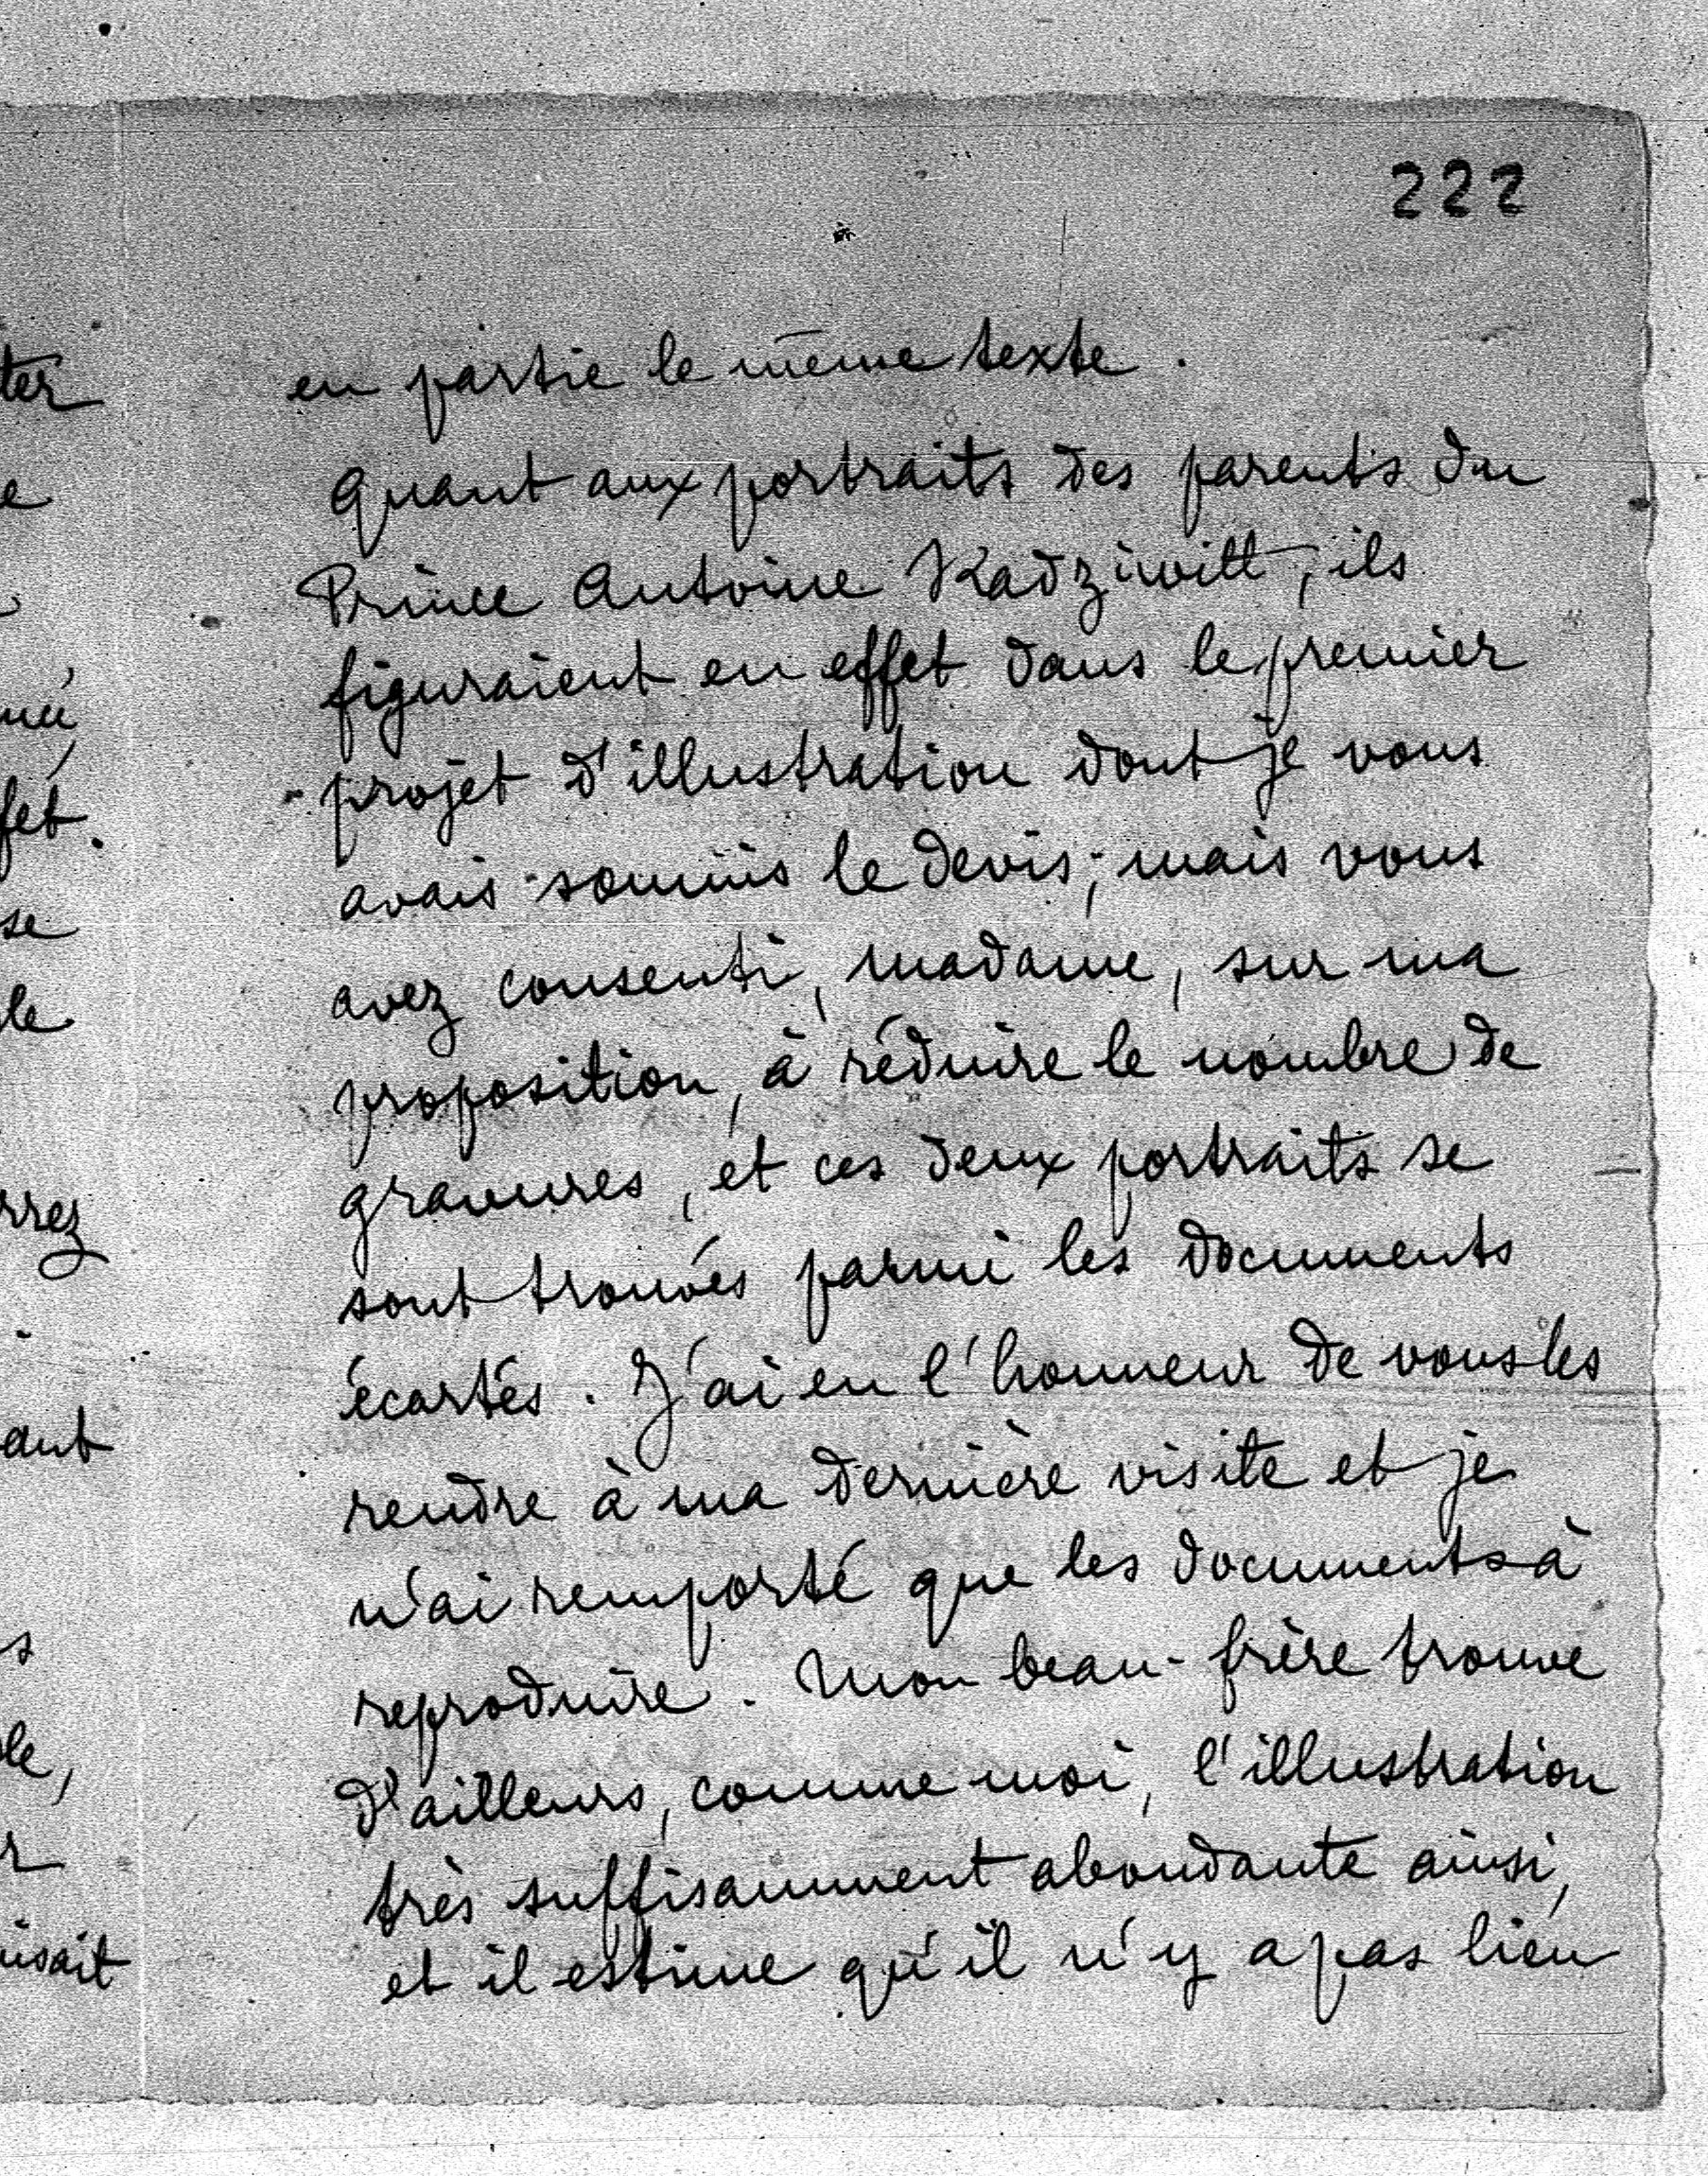 222
en partie le même texte.
Quant aux portraits des parents du
Prince Antoine Radziwill, ils
figuraient en effet dans le premier
projet d'illustration dont je vous
avais soumis le devis; mais vous
avez consenti, madame, sur ma
proposition, à réduire le nombre de
gravures, et ces deux portraits se
sont trouvés parmi les documents
écartés. J'ai eu l'honneur de vous les
rendre à ma dernière visite et je
n'ai remporté que les documents à
reproduire. Mon beau-frère trouve
d'ailleurs, comme moi, l'illustration
très suffisamment abondante ainsi,
et il estime qu'il n'y a pas lieu